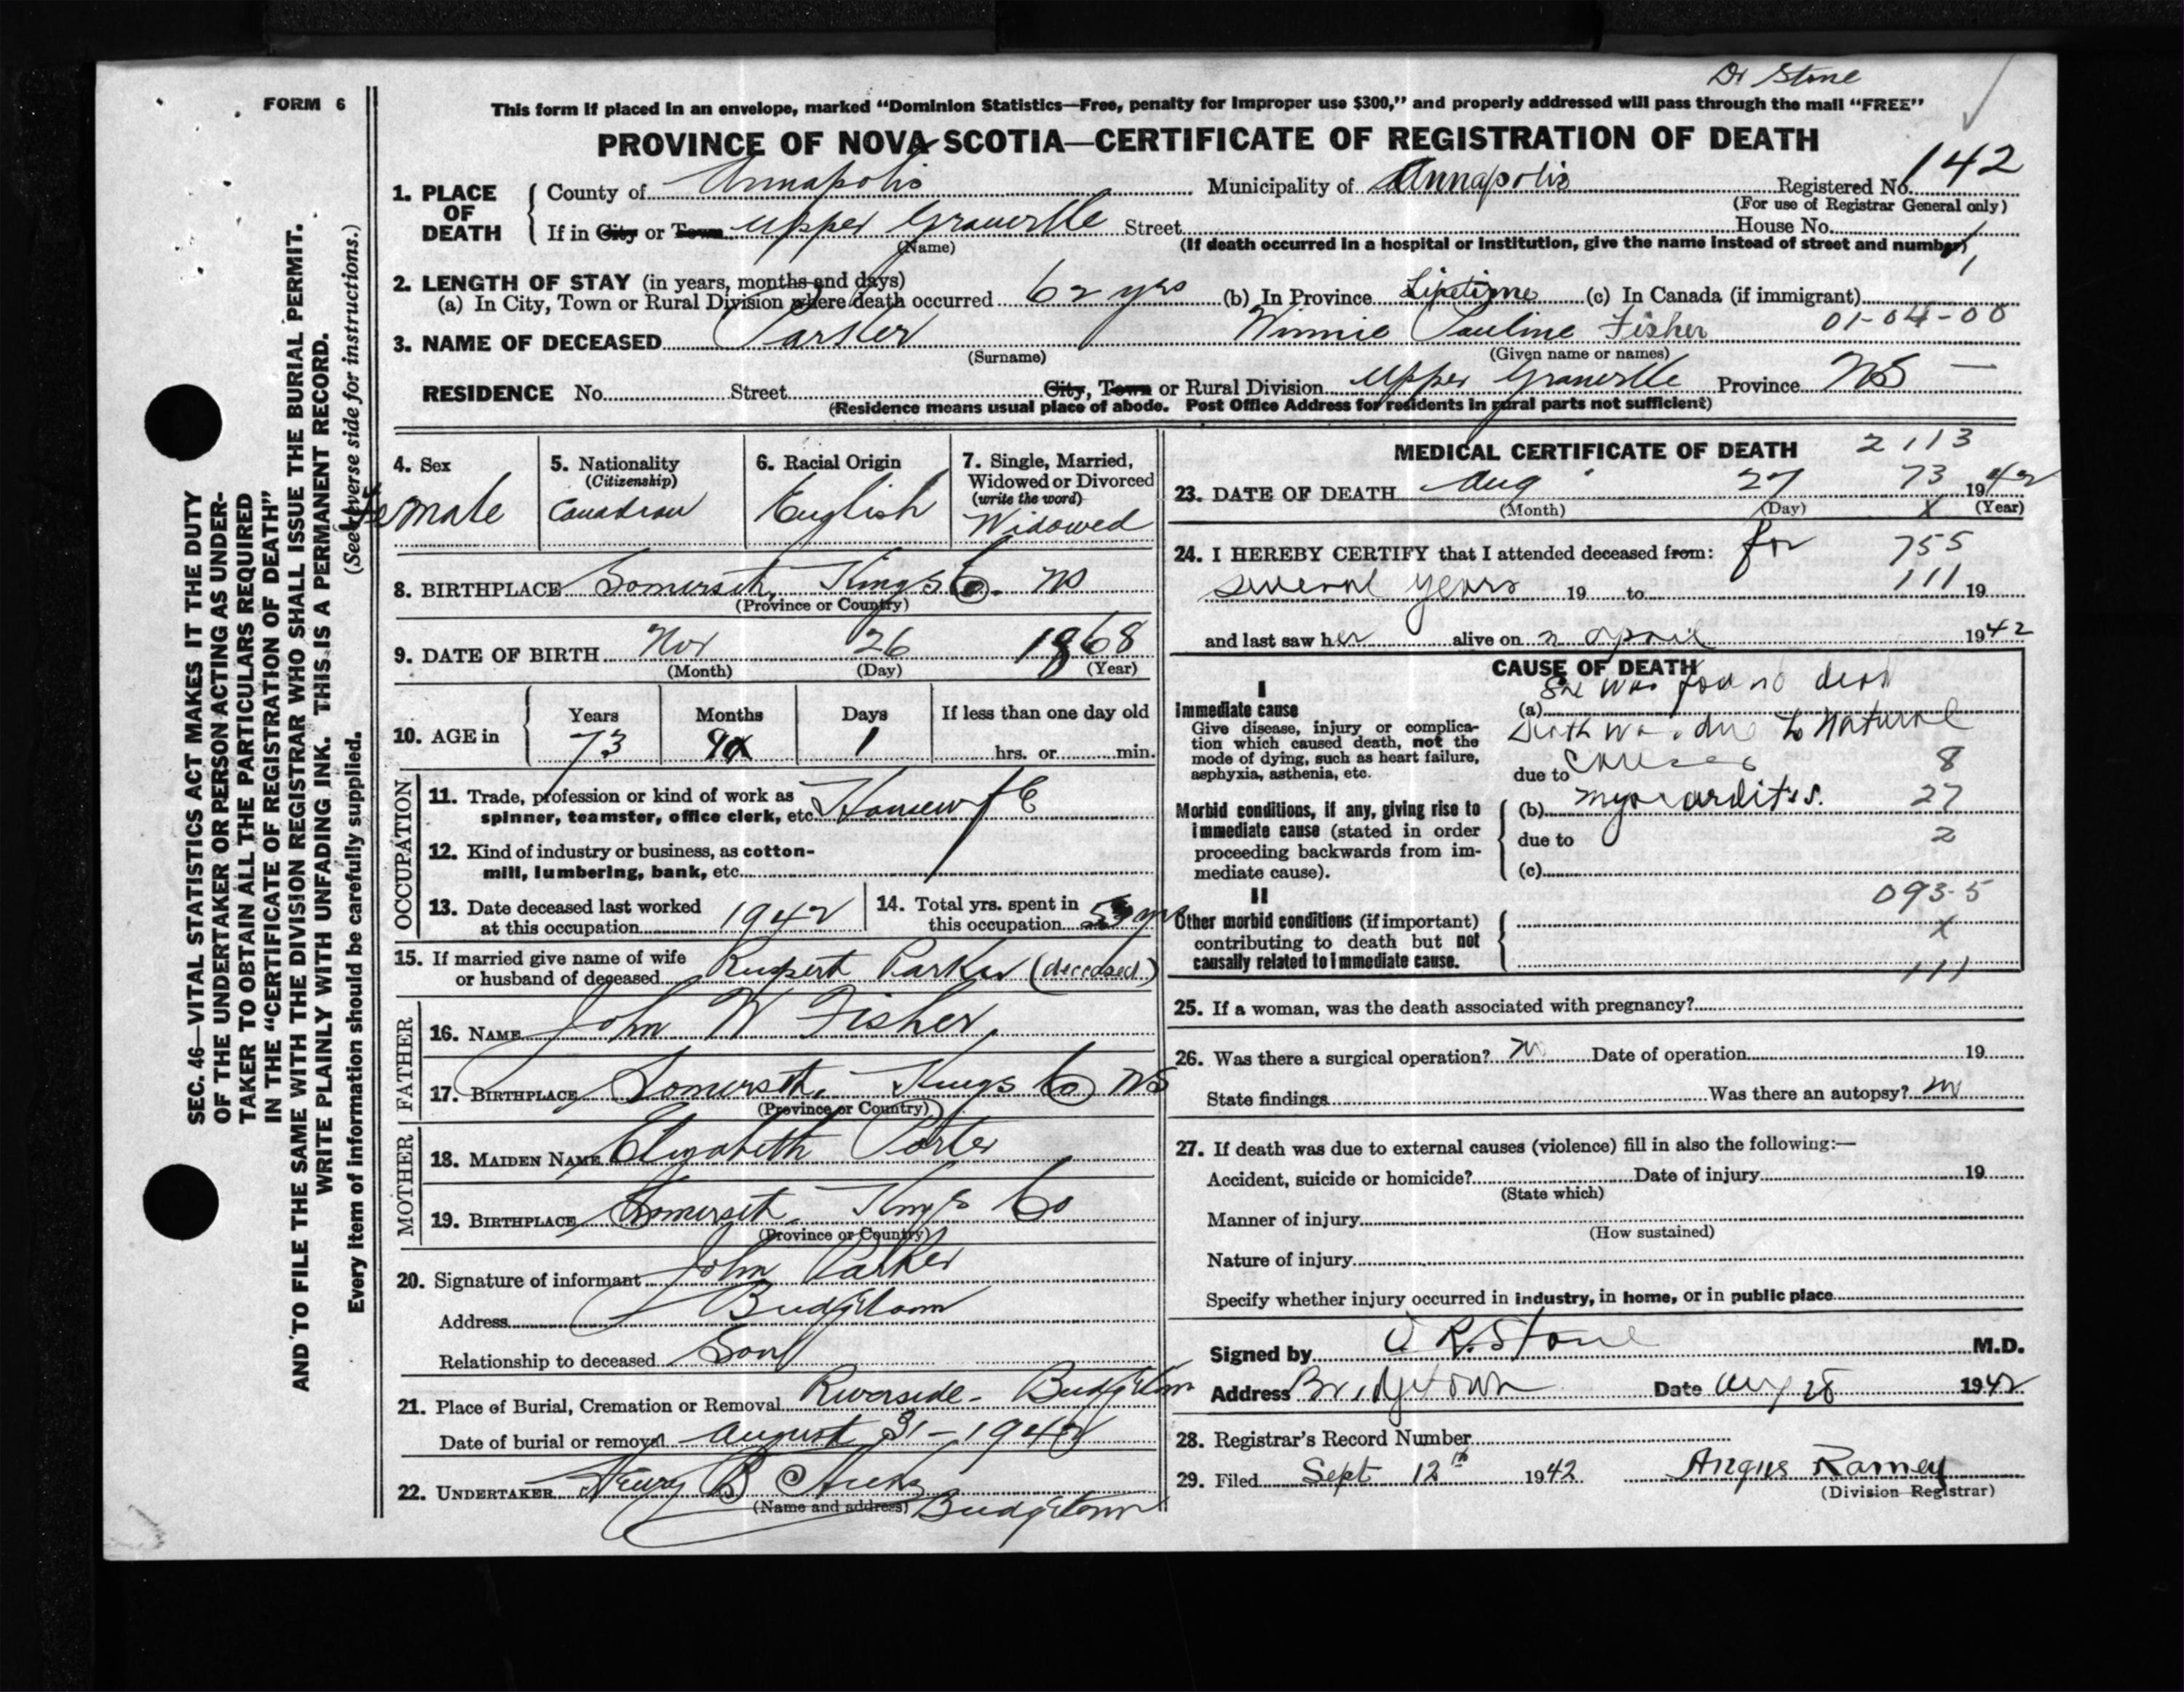 Dr Stone
FORM 6
This form if placed in an envelope, marked “Dominion Statistics—Free, penalty for improper use $300,” and properly addressed will pass through the mail “FREE”
PROVINCE OF NOVA SCOTIA—CERTIFICATE OF REGISTRATION OF DEATH
142
1. PLACE OF DEATH
County of Annapolis Municipality of Annapolis Registered No.
(For use of Registrar General only)
If in City or Town Upper Granville Street House No.
(Name) (If death occurred in a hospital or institution, give the name instead of street and number)
2. LENGTH OF STAY (in years, months and days)
(a) In City, Town or Rural Division where death occurred 62 yrs (b) In Province Lifetime (c) In Canada (if immigrant)
01-04-00
3. NAME OF DECEASED Parker Winnie Pauline Fisher
(Surname) (Given name or names)
RESIDENCE No. Street City, Town or Rural Division Upper Granville Province NS —
(Residence means usual place of abode. Post Office Address for residents in rural parts not sufficient)
4. Sex
Female
5. Nationality
(Citizenship)
Canadian
6. Racial Origin
English
7. Single, Married,
Widowed or Divorced
(write the word)
Widowed
8. BIRTHPLACE Somerset, Kings Co. NS
(Province or Country)
9. DATE OF BIRTH Nov 26 1868
(Month) (Day) (Year)
10. AGE in
Years Months Days If less than one day old
73 9 1 hrs. or min.
OCCUPATION
11. Trade, profession or kind of work as
spinner, teamster, office clerk, etc. Housewife
12. Kind of industry or business, as cotton-
mill, lumbering, bank, etc.
13. Date deceased last worked
at this occupation 1942
14. Total yrs. spent in
this occupation yrs
15. If married give name of wife
or husband of deceased Rupert Parker (deceased)
FATHER
16. NAME John W Fisher
17. BIRTHPLACE Somerset, Kings Co NS
(Province or Country)
MOTHER
18. MAIDEN NAME Elizabeth Porter
19. BIRTHPLACE Somerset, Kings Co
(Province or Country)
20. Signature of informant John Parker
Address Bridgetown
Relationship to deceased Son
21. Place of Burial, Cremation or Removal Riverside - Bridgetown
Date of burial or removal August 31 - 1942
22. UNDERTAKER Henry B Hicks
(Name and address) Bridgetown
MEDICAL CERTIFICATE OF DEATH 2113
23. DATE OF DEATH Aug 27 73 1942
(Month) (Day) X (Year)
24. I HEREBY CERTIFY that I attended deceased from: for 755
several years 19 to 111 19
and last saw her alive on in April 1942
CAUSE OF DEATH
I
Immediate cause
Give disease, injury or complica-
tion which caused death, not the
mode of dying, such as heart failure,
asphyxia, asthenia, etc.
She was found dead
(a)
Death was due to Natural
due to Causes 8
Morbid conditions, if any, giving rise to
immediate cause (stated in order
proceeding backwards from im-
mediate cause).
(b) myocarditis. 27
due to 2
(c)
093-5
II
Other morbid conditions (if important)
contributing to death but not
causally related to immediate cause.
X
111
25. If a woman, was the death associated with pregnancy?
26. Was there a surgical operation? no Date of operation 19
State findings Was there an autopsy? no
27. If death was due to external causes (violence) fill in also the following:—
Accident, suicide or homicide? Date of injury 19
(State which)
Manner of injury
(How sustained)
Nature of injury
Specify whether injury occurred in industry, in home, or in public place
Signed by R. Stone M.D.
Address Bridgetown Date Aug 28 1942
28. Registrar's Record Number
29. Filed Sept 12th 1942 Angus Ramey
(Division Registrar)
SEC. 46—VITAL STATISTICS ACT MAKES IT THE DUTY
OF THE UNDERTAKER OR PERSON ACTING AS UNDER-
TAKER TO OBTAIN ALL THE PARTICULARS REQUIRED
IN THE “CERTIFICATE OF REGISTRATION OF DEATH”
AND TO FILE THE SAME WITH THE DIVISION REGISTRAR WHO SHALL ISSUE THE BURIAL PERMIT.
WRITE PLAINLY WITH UNFADING INK. THIS IS A PERMANENT RECORD.
Every item of information should be carefully supplied. (See reverse side for instructions.)